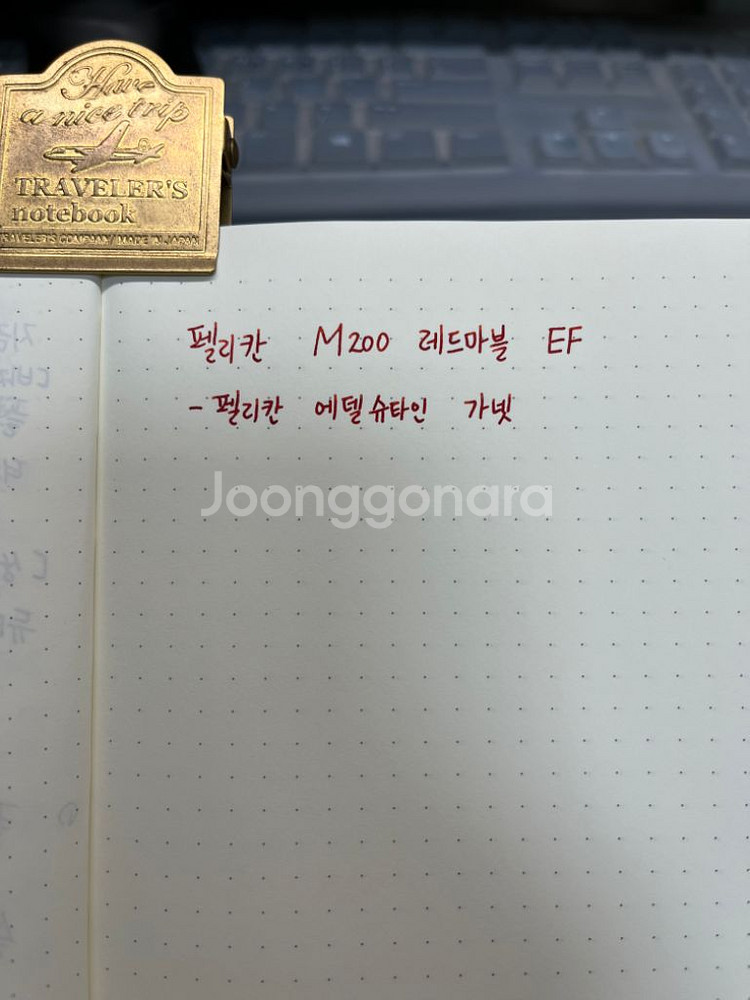 Have
a nice trip
TRAVELER'S
notebook
TRAVELER'S COMPANY MADE IN JAPAN
펠리칸 M200 레드마블 EF
- 펠리칸 에델슈타인 가넷
Joonggonara